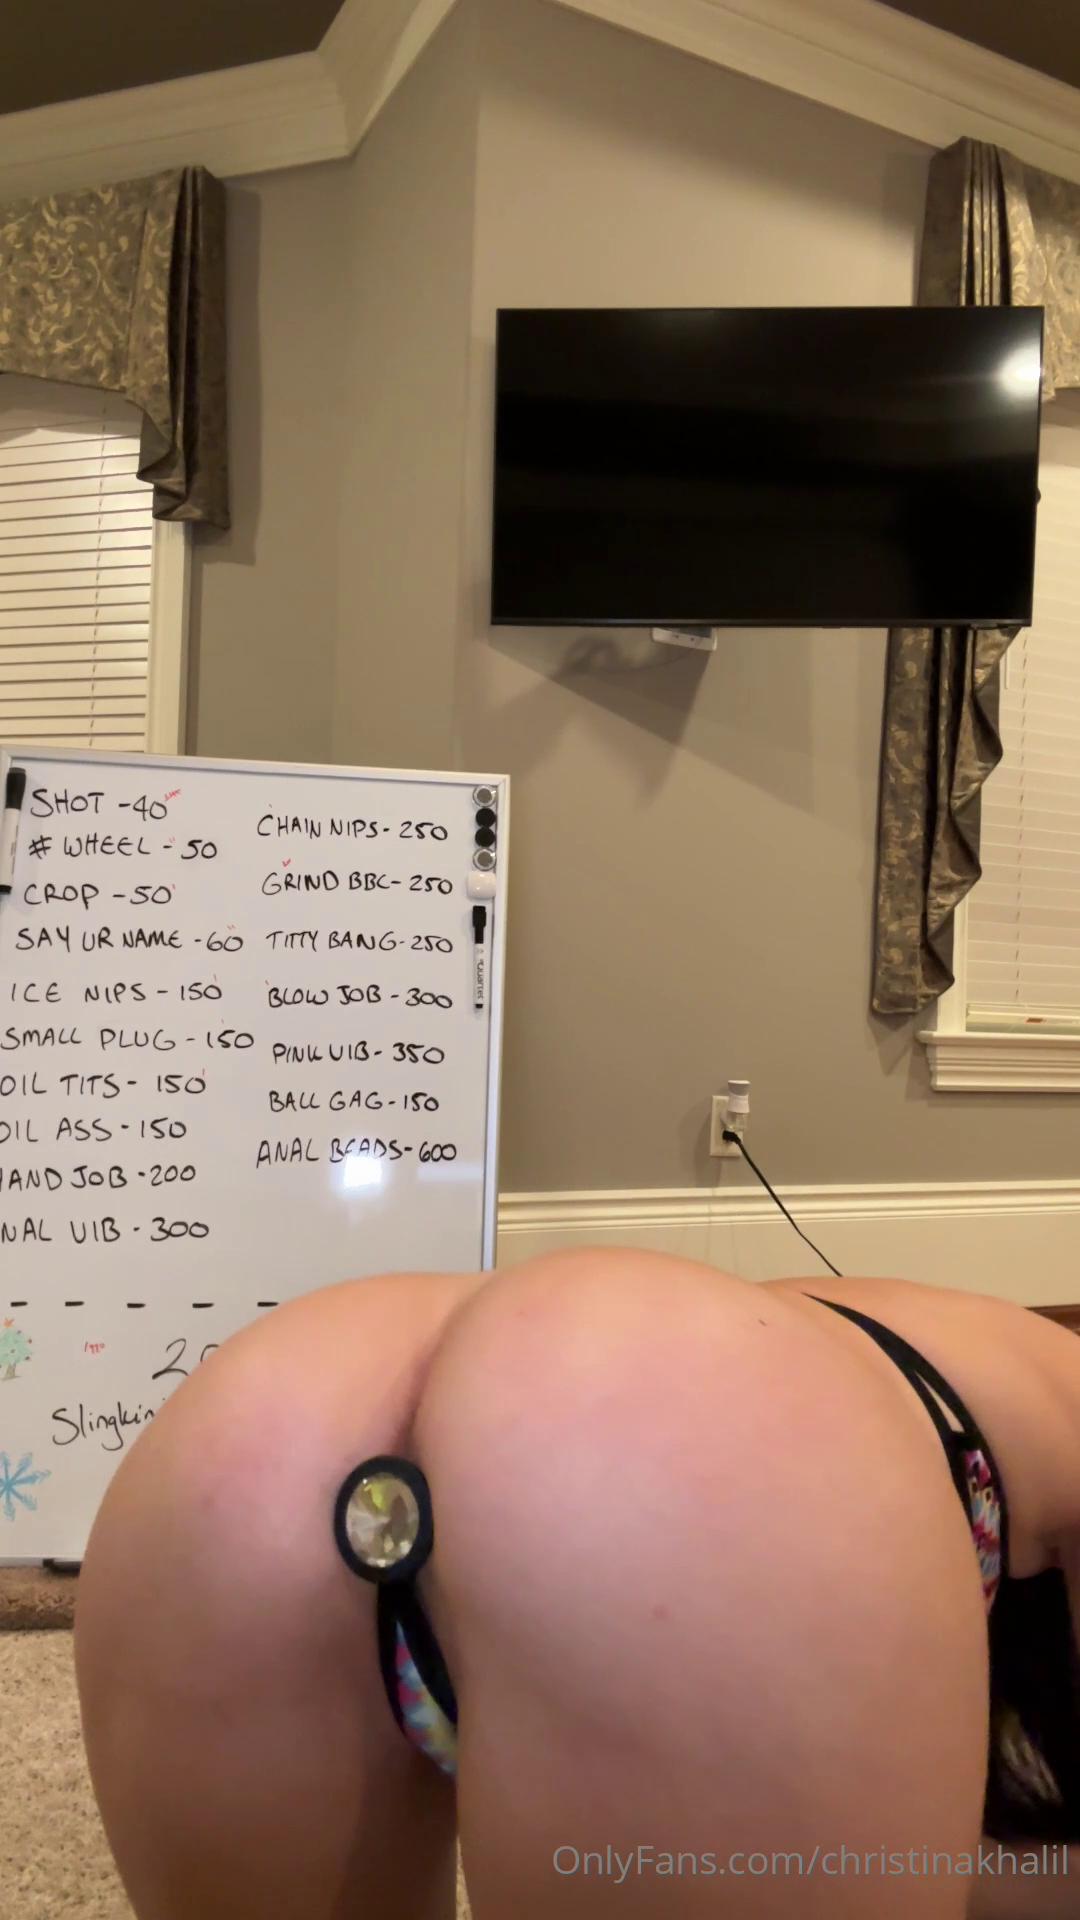 SHOT - 40
# WHEEL - 50
CROP - 50
SAY UR NAME - 60
ICE NIPS - 150
SMALL PLUG - 150
OIL TITS - 150
OIL ASS - 150
HAND JOB - 200
NAL VIB - 300
CHAIN NIPS - 250
GRIND BBC - 250
TITTY BANG - 250
BLOW JOB - 300
PINK VIB - 350
BALL GAG - 150
ANAL BEADS - 600
Slingkin
OnlyFans.com/christinakhalil